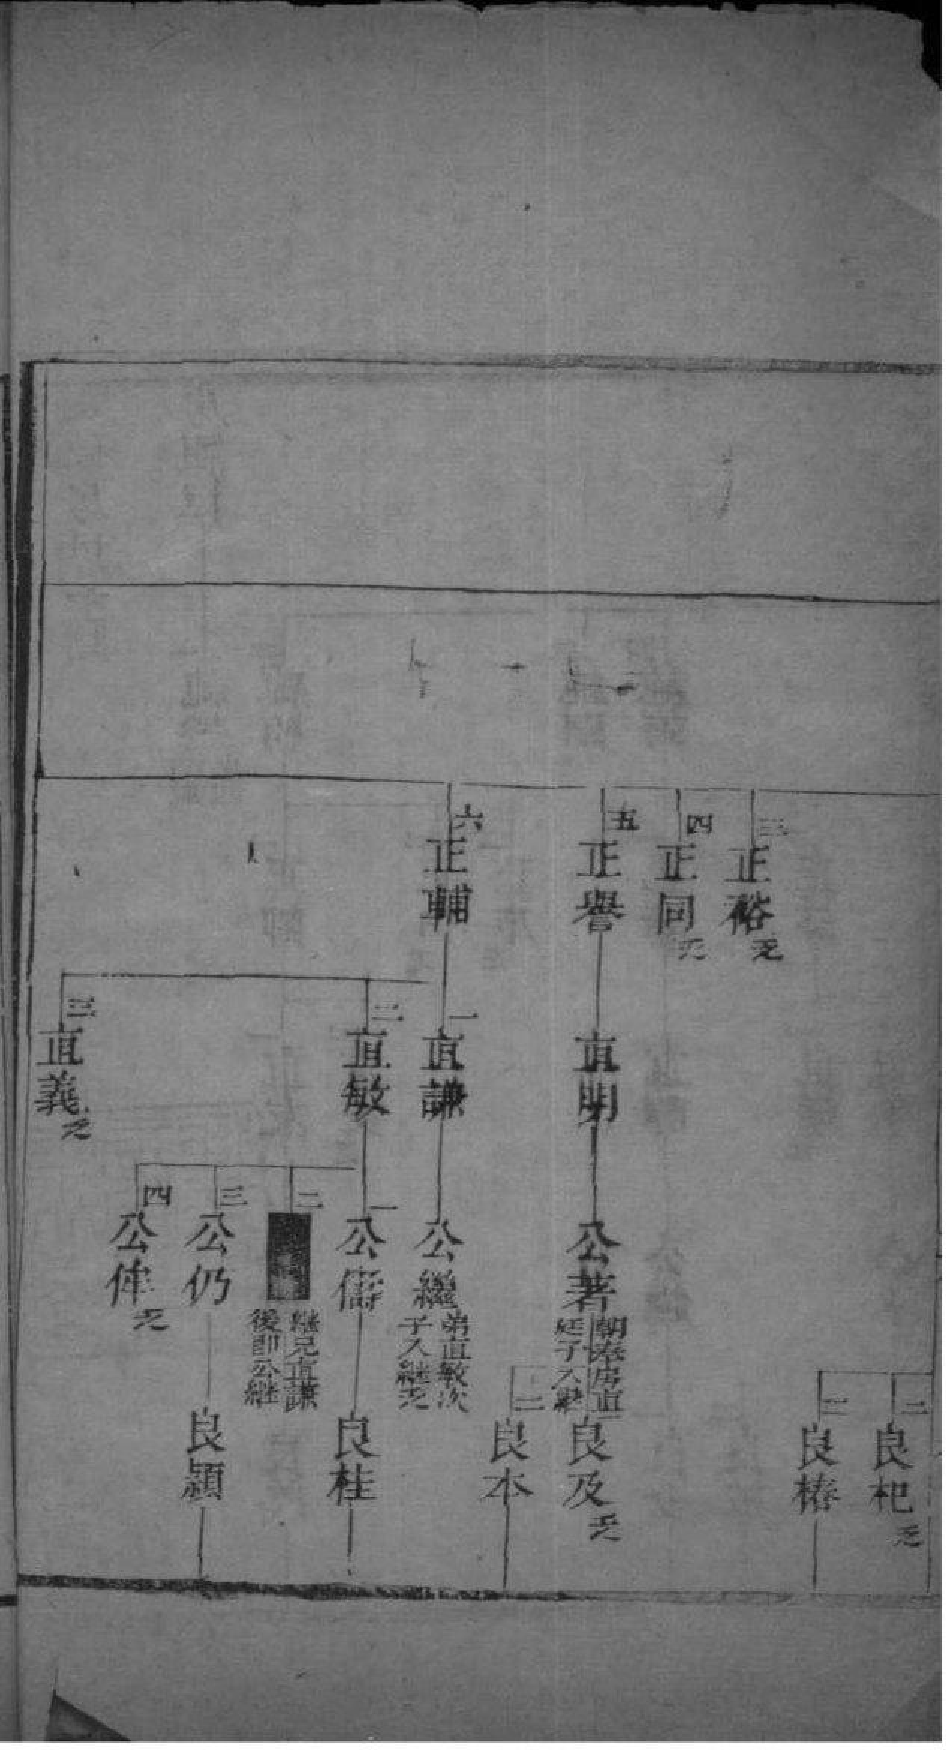 三
正裕
无
四
正同
无
五
正譽
六
正輔
直明
一
直謙
二
直敏
三
直義
无
公著
朝泰房直
廷子入繼
公繼
弟直敏次
子入繼无
一
公儒
二
繼兄直謙
後即公繼
三
公仍
四
公俥
无
二
良杞
无
三
良椿
一
良及
无
二
良本
良桂
良頴